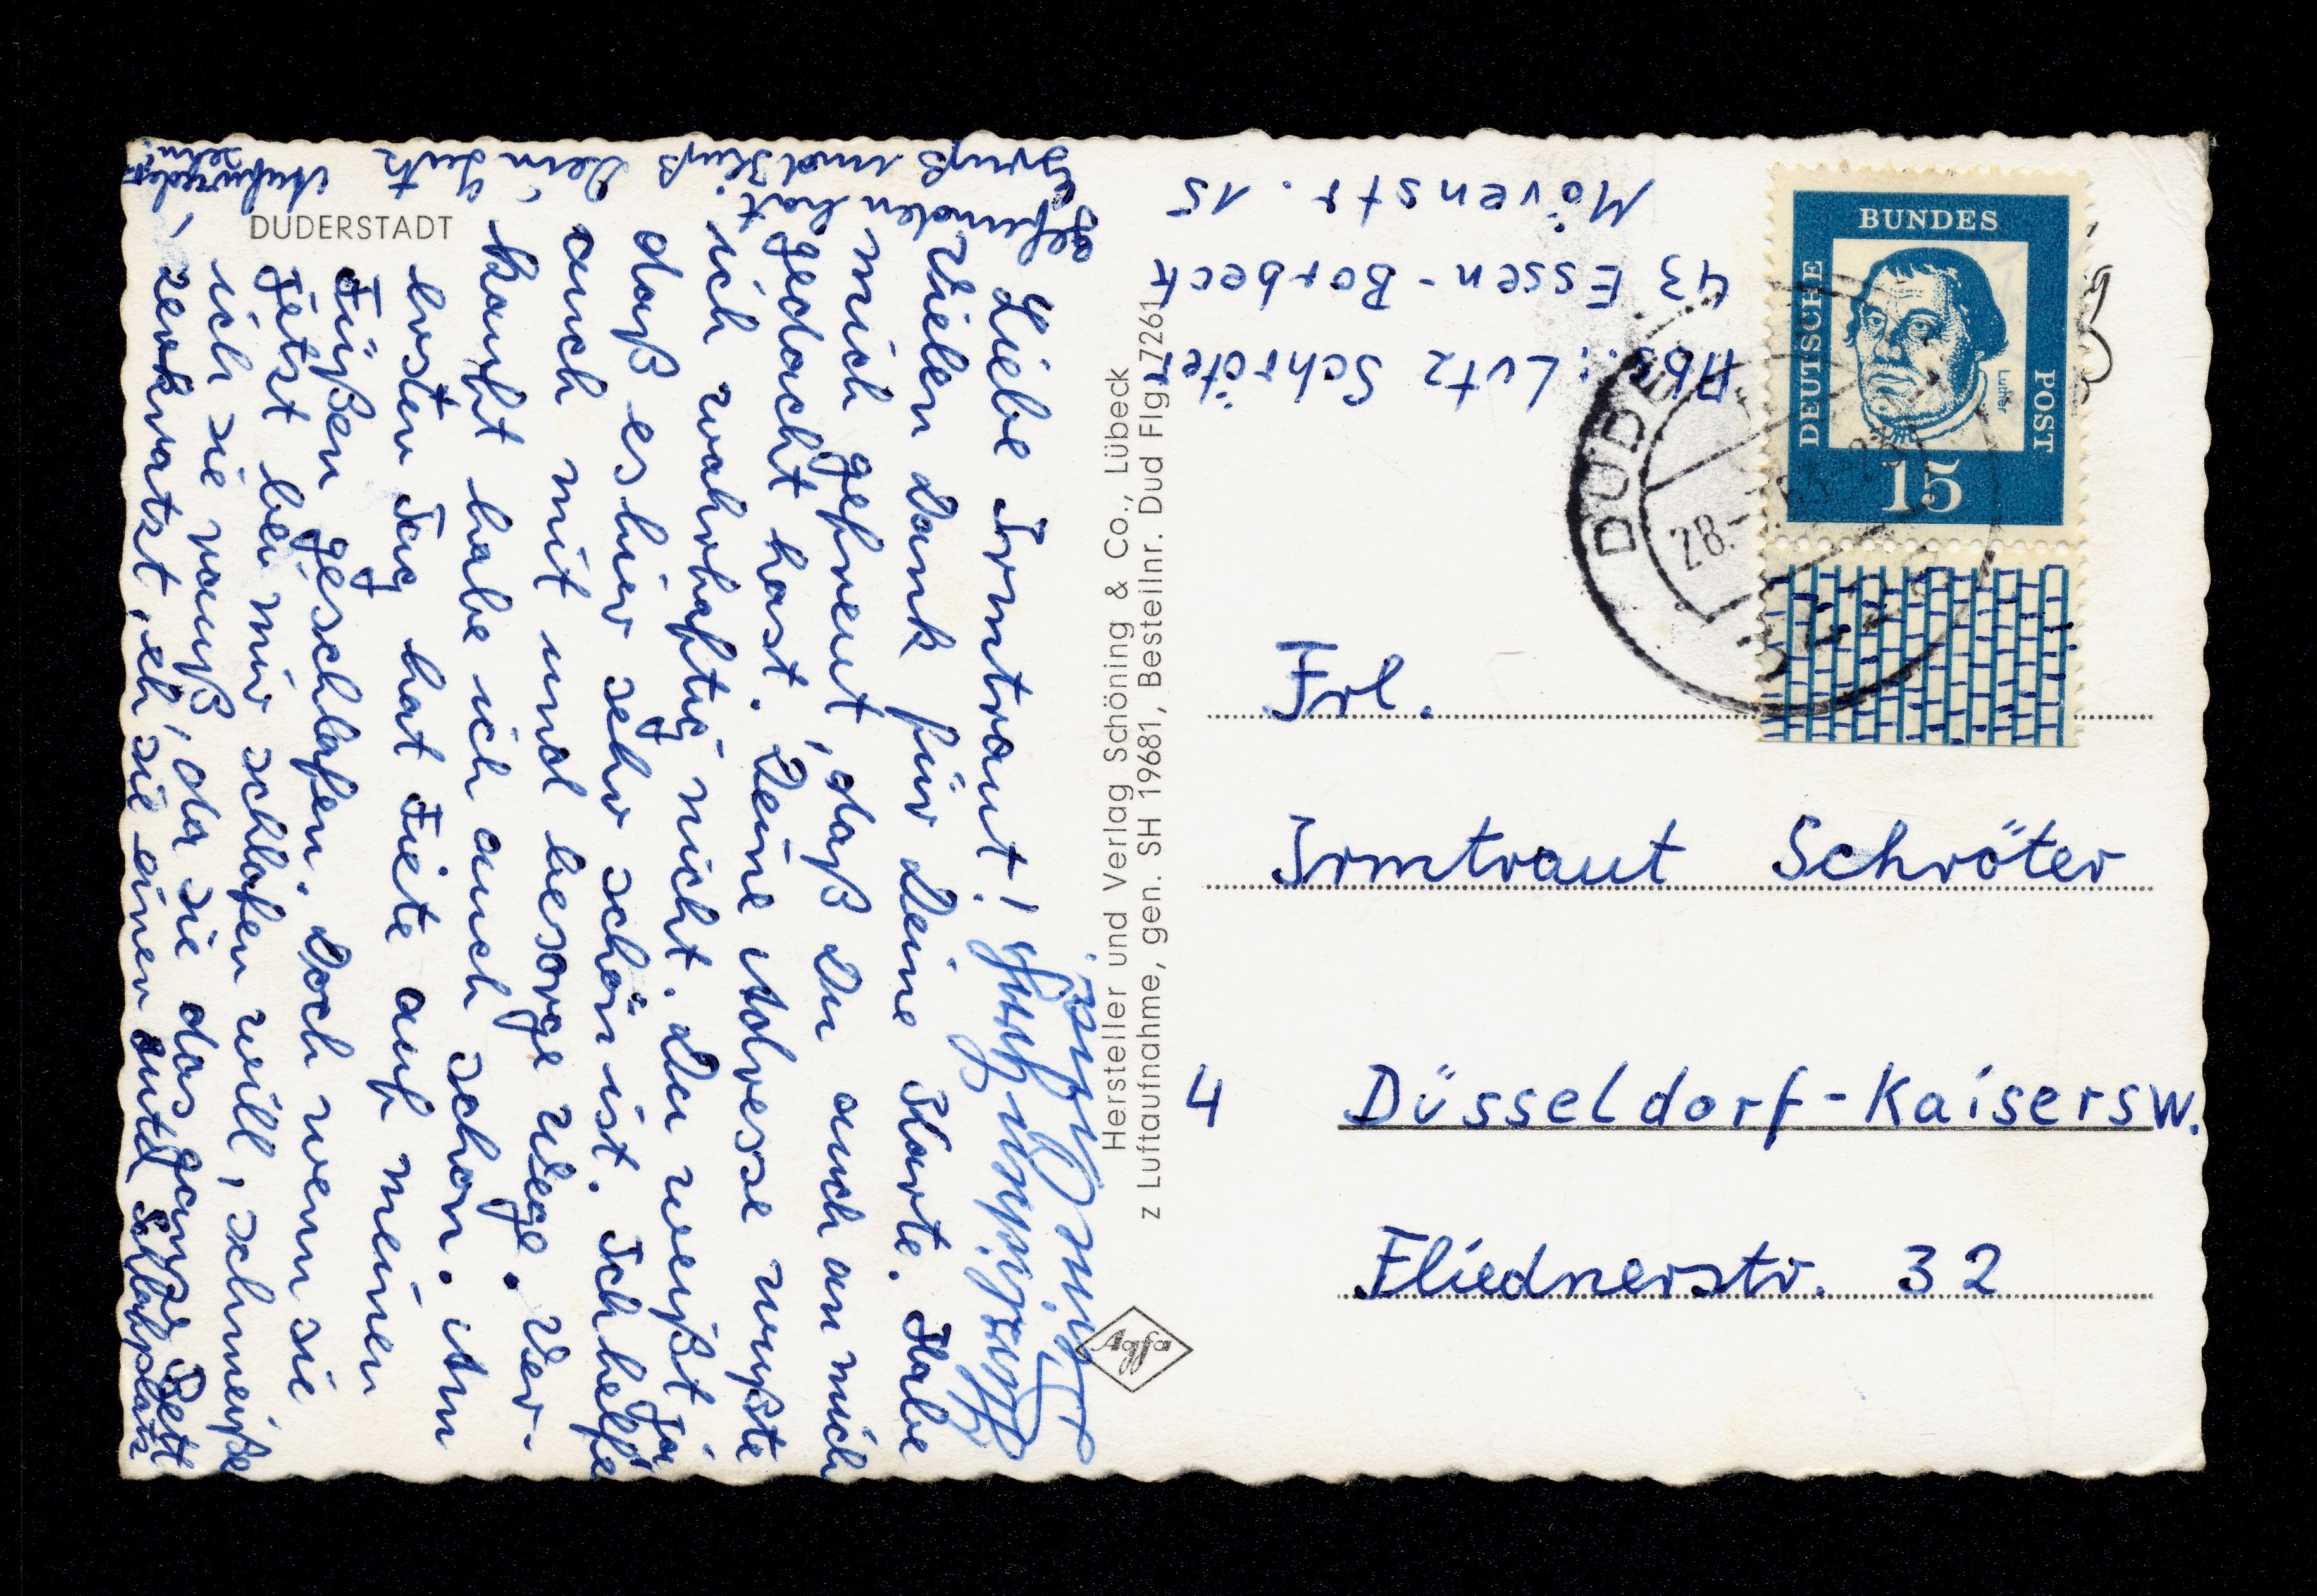 DUDERSTADT
Liebe Irmtraut!
Vielen Dank für Deine Karte. Habe
mich gefreut, daß Du auch an mich
gedacht hast. Deine Adresse wußte
ich wahrhaftig nicht. Du weißt ja
daß es hier sehr schön ist. Ich helfe
auch mit und besorge Wege. Ver-
kauft habe ich auch schon. Am
ersten Tag hat Fiete auf meinen
Füßen geschlafen. Doch wenn sie
jetzt bei mir schlafen will, schmeiße
ich sie rauß, da sie das ganze Bett
zerknatst, eh sie einen gute Schlafplatz
gefunden hat.
Gruß und Kuß Dein Lutz
Aufwiedersehn!
Hersteller und Verlag Schöning & Co., Lübeck
z Luftaufnahme, gen. SH 19681, Bestellnr. Dud Flg 7261
Agfa
Abs.: Lutz Schröter
43 Essen-Borbeck
Mövenstr. 15
DEUTSCHE
BUNDES
POST
Luther
15
DUDE
28.
Frl.
Irmtraut Schröter
4 Düsseldorf-Kaisersw.
Fliednerstr. 32